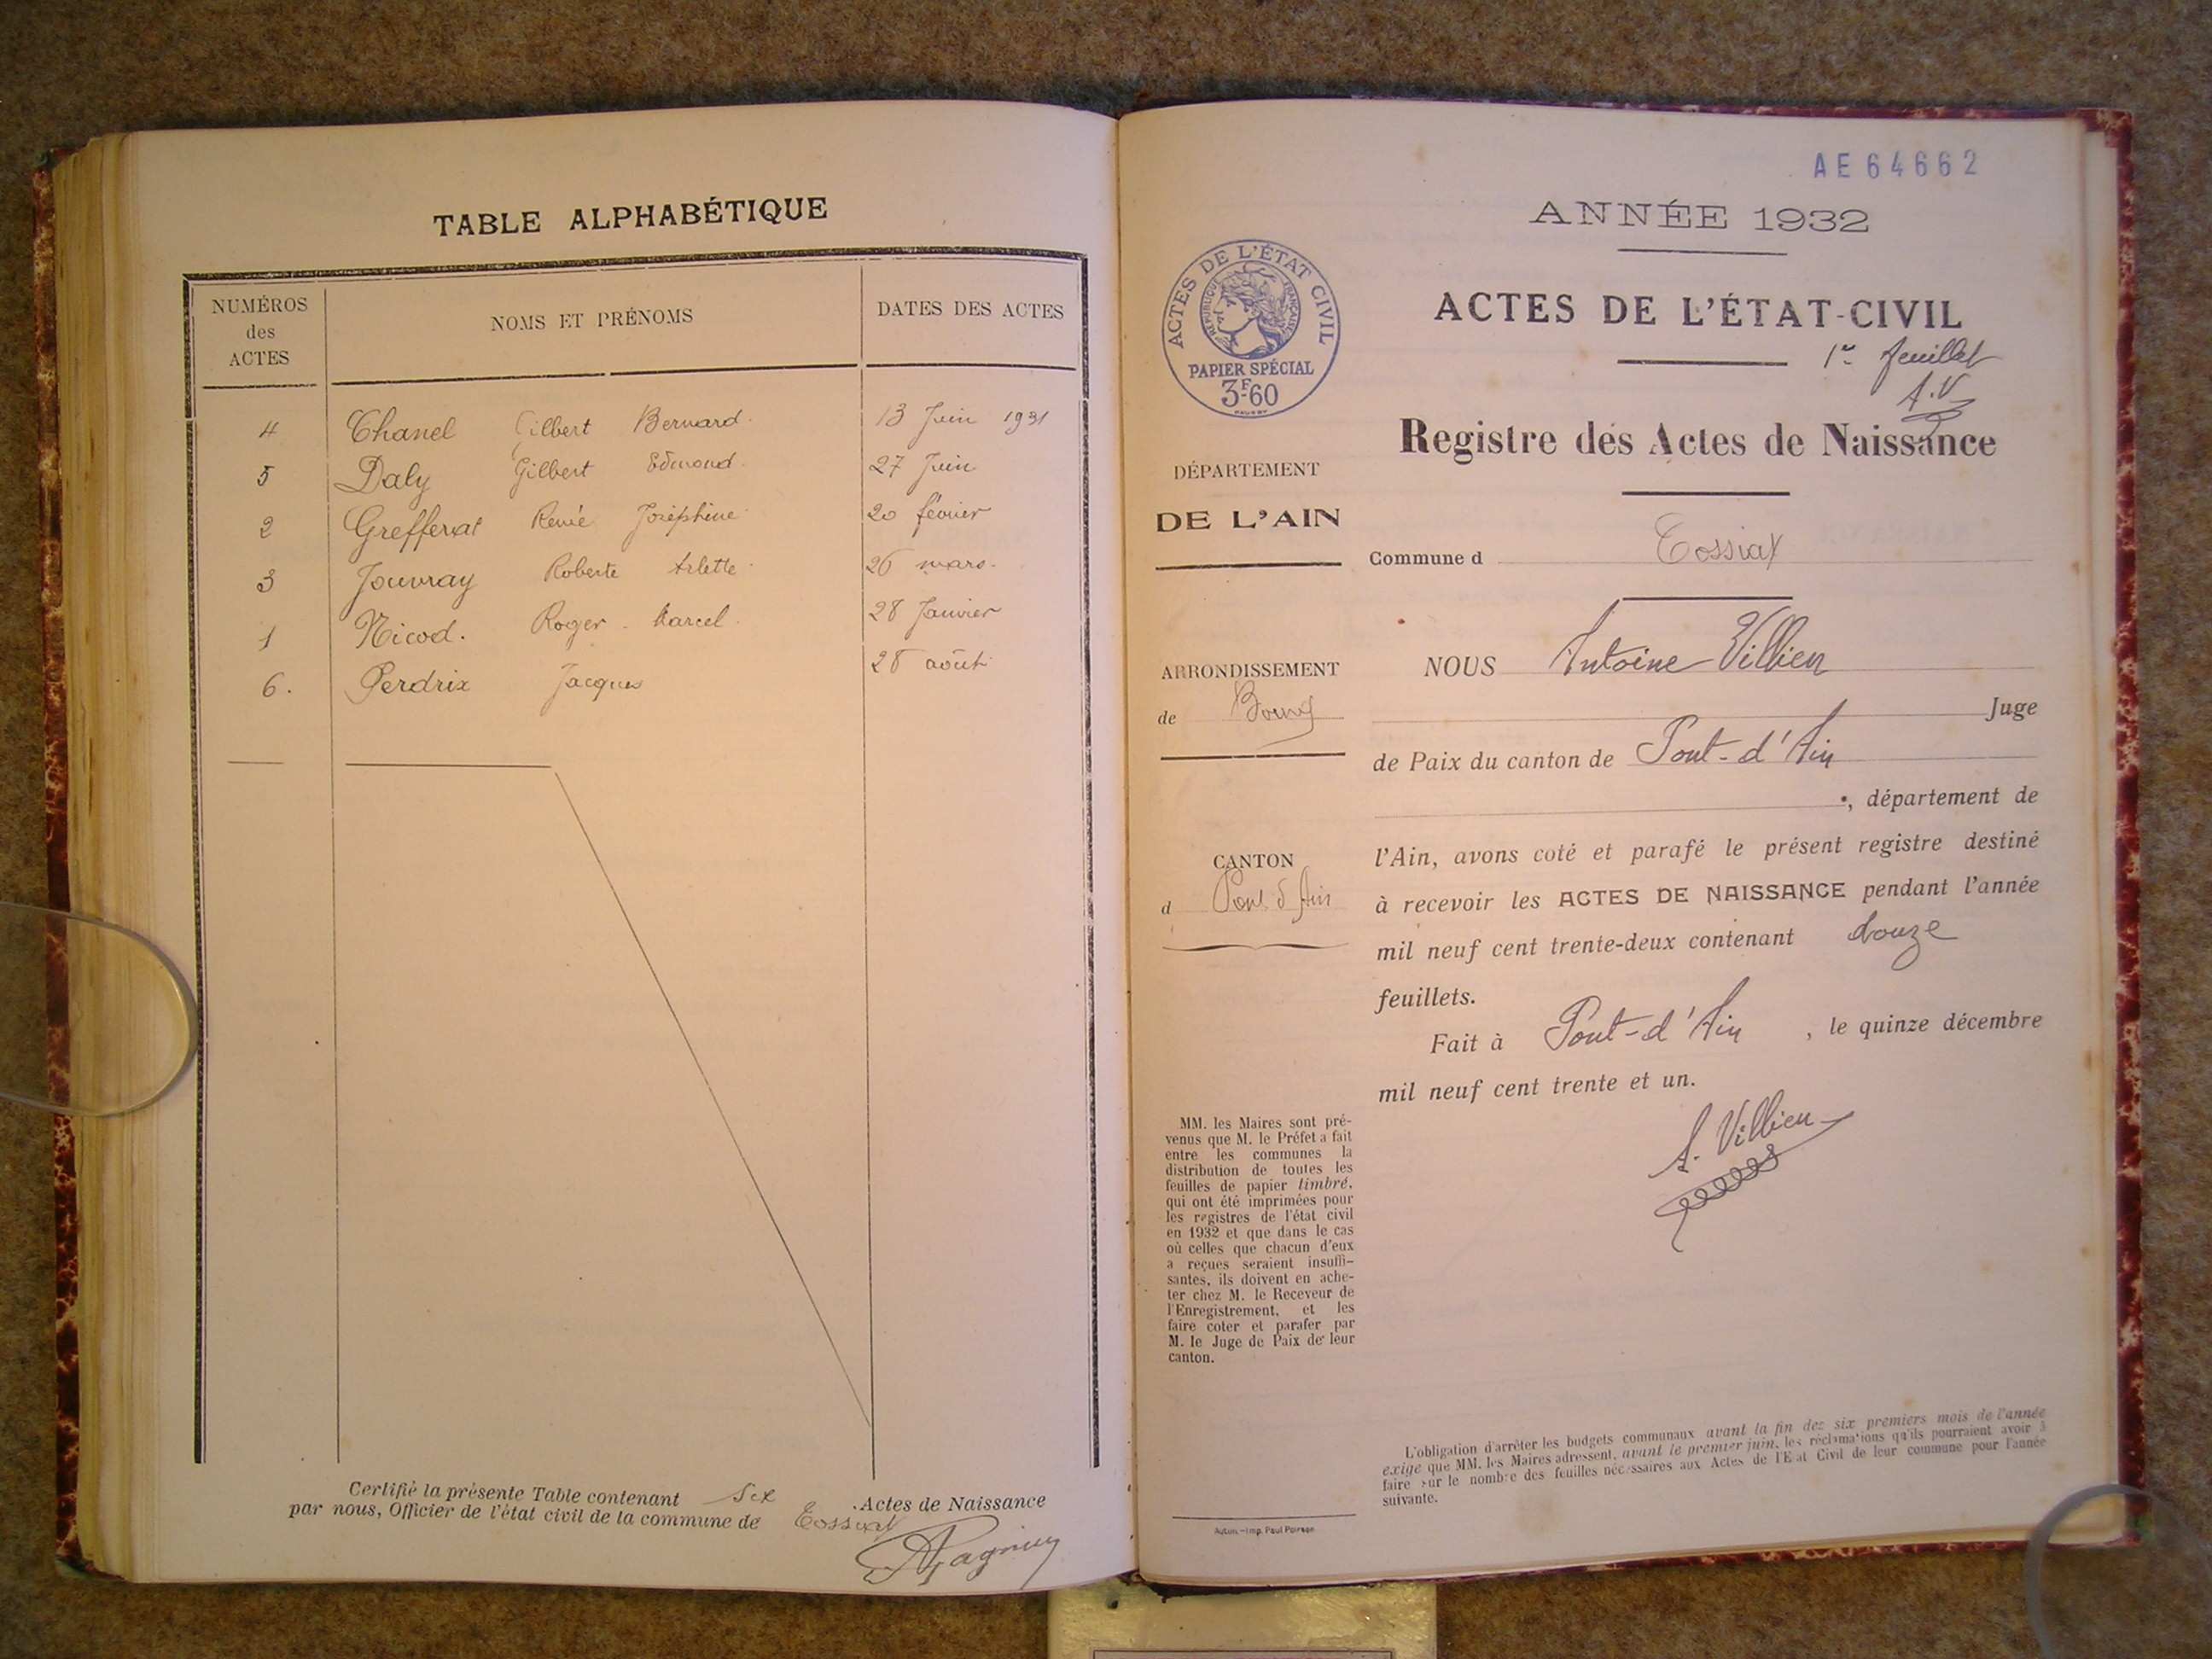 TABLE ALPHABÉTIQUE
NUMÉROS des ACTES NOMS ET PRÉNOMS DATES DES ACTES
4 Chanel Gilbert Bernard. 13 Juin 1931
5 Daly Gilbert Edmond. 27 Juin
2 Grefferat Renée Joséphine 20 février
3 Jouvray Roberte Arlette 26 mars.
1 Nicod. Roger Marcel 28 Janvier
6. Perdrix Jacques 28 août
Certifié la présente Table contenant Six Actes de Naissance
par nous, Officier de l'état civil de la commune de Tossiat
AE 64662
ANNÉE 1932
ACTES DE L'ÉTAT CIVIL
RÉPUBLIQUE FRANÇAISE
PAPIER SPÉCIAL
3F60
ACTES DE L'ÉTAT-CIVIL
1er feuillet
A.V
Registre des Actes de Naissance
DÉPARTEMENT
DE L'AIN
Commune d Tossiat
ARRONDISSEMENT
de Bourg
CANTON
d Pont d'Ain
NOUS Antoine Villien
Juge
de Paix du canton de Pont-d'Ain
, département de
l'Ain, avons coté et parafé le présent registre destiné
à recevoir les ACTES DE NAISSANCE pendant l'année
mil neuf cent trente-deux contenant douze
feuillets.
Fait à Pont-d'Ain , le quinze décembre
mil neuf cent trente et un.
A. Villien
MM. les Maires sont pré-
venus que M. le Préfet a fait
entre les communes la
distribution de toutes les
feuilles de papier timbré,
qui ont été imprimées pour
les registres de l'état civil
en 1932 et que dans le cas
où celles que chacun d'eux
a reçues seraient insuffi-
santes, ils doivent en ache-
ter chez M. le Receveur de
l'Enregistrement, et les
faire coter et parafer par
M. le Juge de Paix de leur
canton.
L'obligation d'arrêter les budgets communaux avant la fin des six premiers mois de l'année
exige que MM. les Maires adressent, avant le premier juin, les réclamations qu'ils pourraient avoir à
faire sur le nombre des feuilles nécessaires aux Actes de l'Etat Civil de leur commune pour l'année
suivante.
Autun.—Imp. Paul Poirson